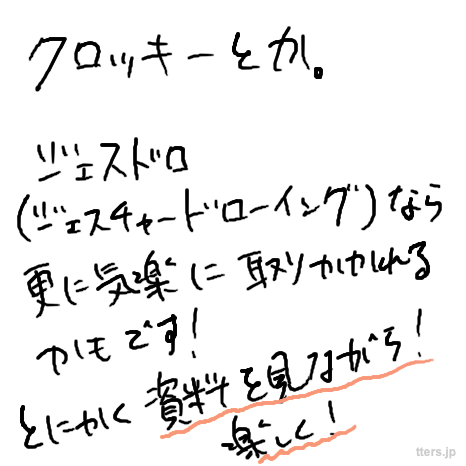 クロッキーとか。
ジェスドロ
(ジェスチャードローイング)なら
更に気楽に取りかかれる
かもです!
とにかく資料を見ながら!
楽しく!
tters.jp